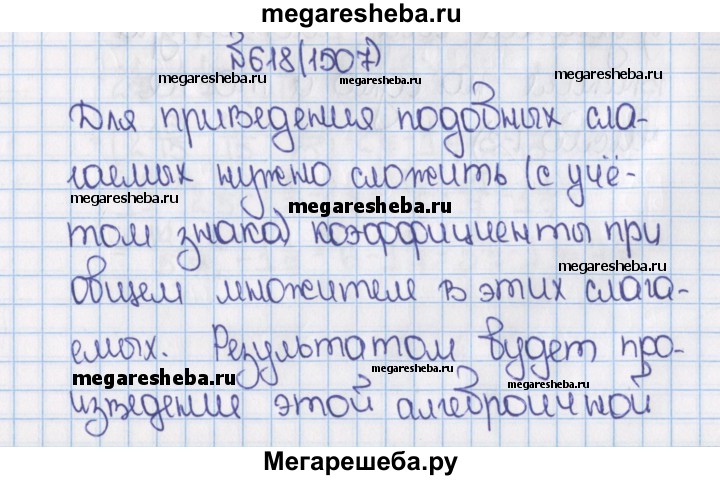 megaresheba.ru
№618(1507)
megaresheba.ru megaresheba.ru megaresheba.ru
Для приведения подобных сла-
гаемых нужно сложить (с учё-
megaresheba.ru megaresheba.ru
том знака) коэффициенты при
megaresheba.ru
общем множителе в этих слага-
емых. Результатом будет про-
megaresheba.ru megaresheba.ru megaresheba.ru
изведение этой алгебраичной
Мегарешеба.ру